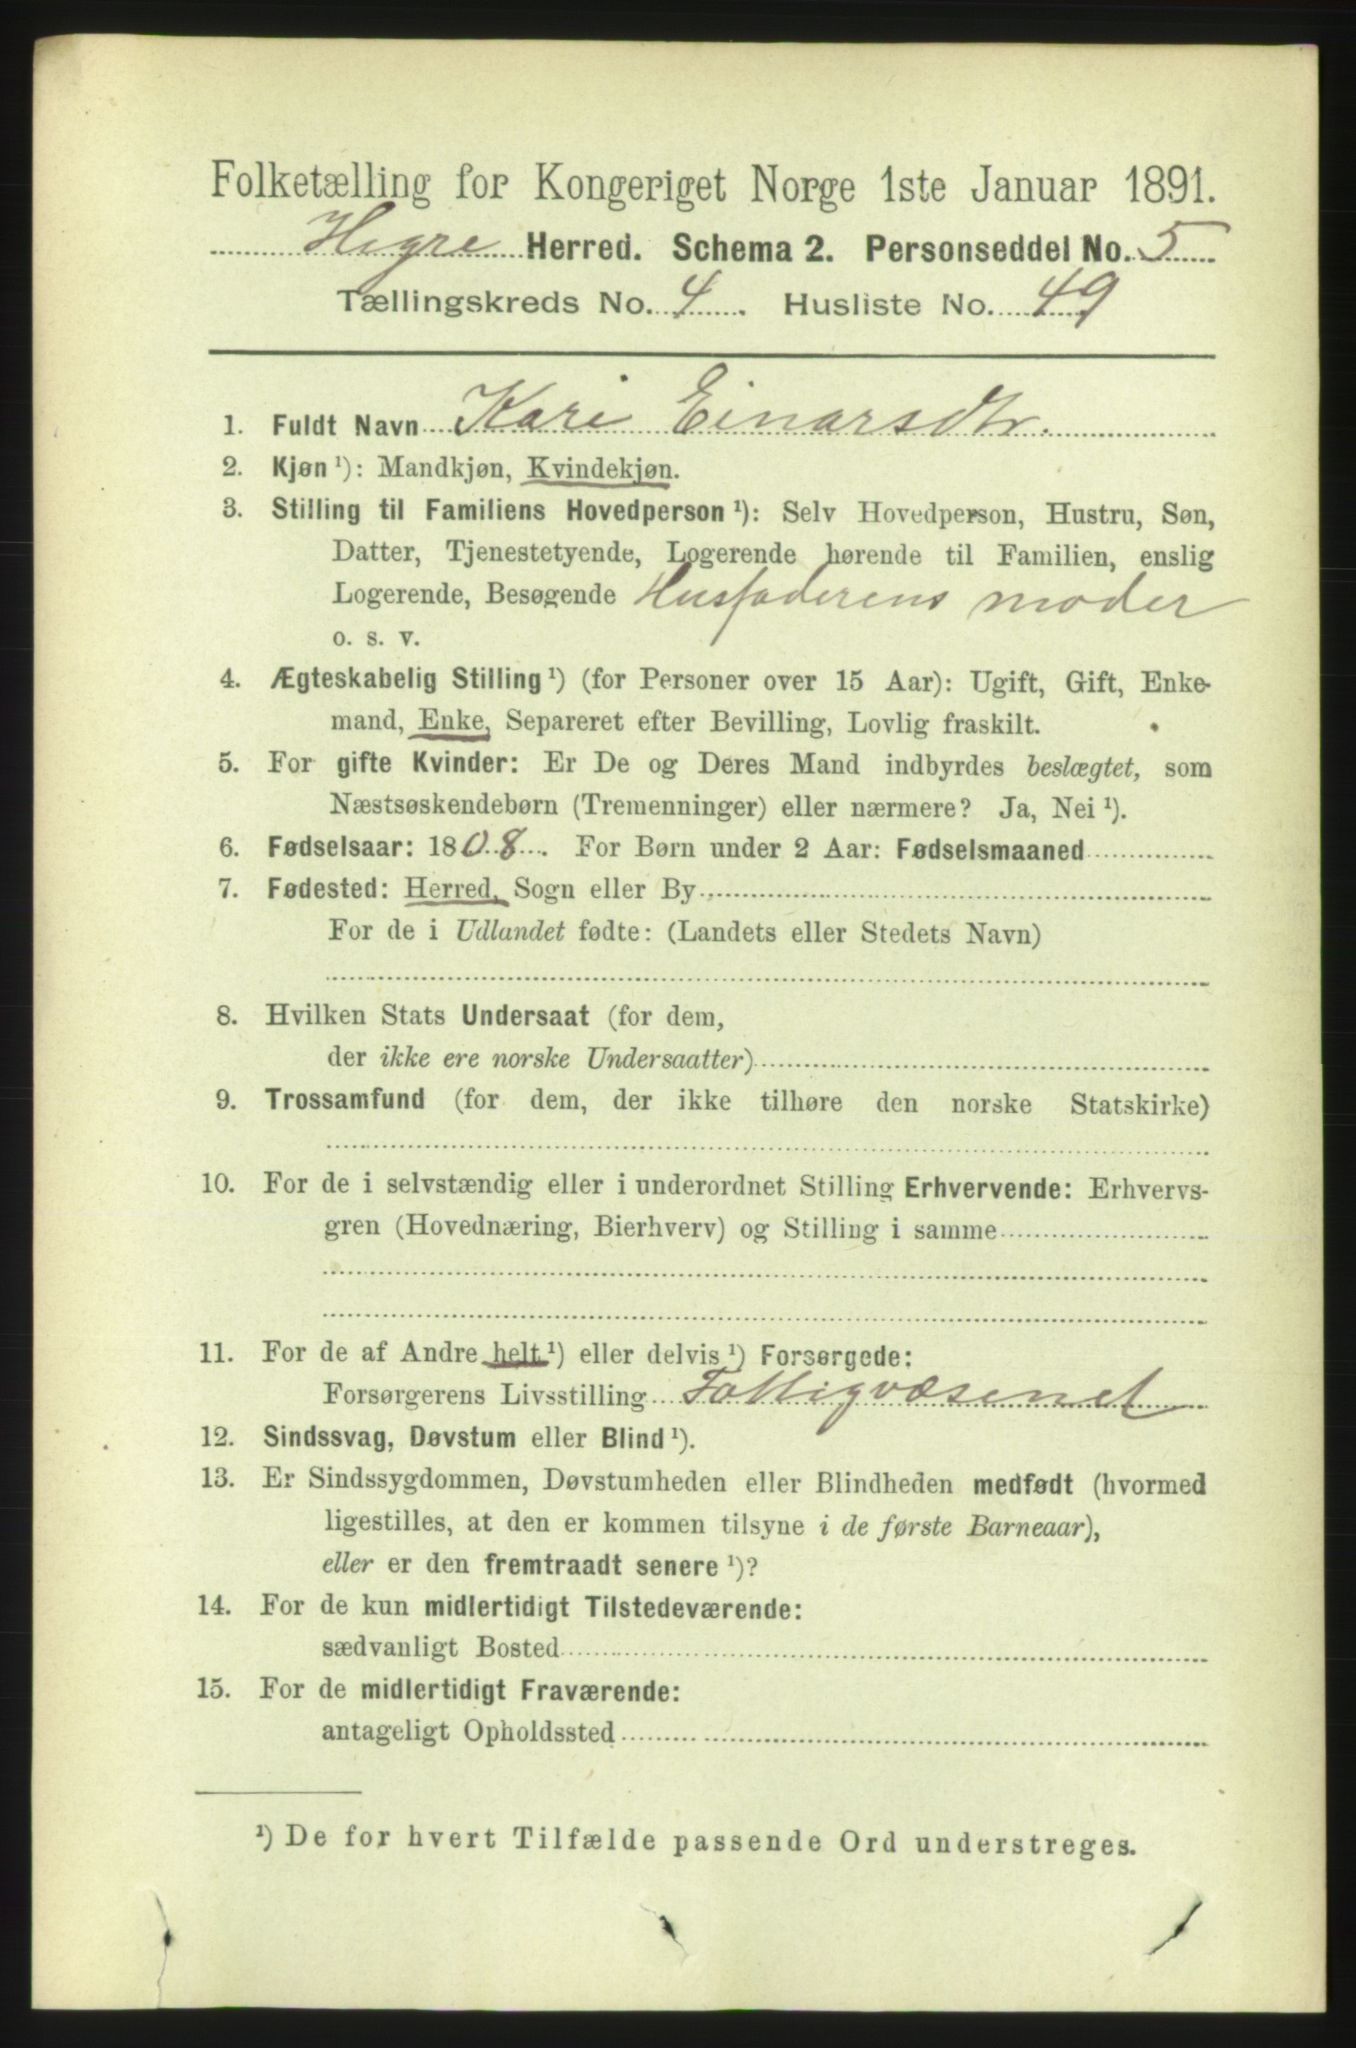 Folketælling for Kongeriget Norge 1ste Januar 1891.
Hegre Herred. Schema 2. Personseddel No. 5
Tællingskreds No. 4. Husliste No. 49
1. Fuldt Navn Kari Einarsdtr.
2. Kjøn ¹): Mandkjøn, Kvindekjøn.
3. Stilling til Familiens Hovedperson ¹): Selv Hovedperson, Hustru, Søn,
Datter, Tjenestetyende, Logerende hørende til Familien, enslig
Logerende, Besøgende Husfaderens moder
o. s. v.
4. Ægteskabelig Stilling ¹) (for Personer over 15 Aar): Ugift, Gift, Enke-
mand, Enke, Separeret efter Bevilling, Lovlig fraskilt.
5. For gifte Kvinder: Er De og Deres Mand indbyrdes beslægtet, som
Næstsøskendebørn (Tremenninger) eller nærmere? Ja, Nei ¹).
6. Fødselsaar: 1808. For Børn under 2 Aar: Fødselsmaaned
7. Fødested: Herred, Sogn eller By
For de i Udlandet fødte: (Landets eller Stedets Navn)
8. Hvilken Stats Undersaat (for dem,
der ikke ere norske Undersaatter)
9. Trossamfund (for dem, der ikke tilhøre den norske Statskirke)
10. For de i selvstændig eller i underordnet Stilling Erhvervende: Erhvervs-
gren (Hovednæring, Bierhverv) og Stilling i samme
11. For de af Andre helt ¹) eller delvis ¹) Forsørgede:
Forsørgerens Livsstilling Fattigvæsenet
12. Sindssvag, Døvstum eller Blind ¹).
13. Er Sindssygdommen, Døvstumheden eller Blindheden medfødt (hvormed
ligestilles, at den er kommen tilsyne i de første Barneaar),
eller er den fremtraadt senere ¹)?
14. For de kun midlertidigt Tilstedeværende:
sædvanligt Bosted
15. For de midlertidigt Fraværende:
antageligt Opholdssted
¹) De for hvert Tilfælde passende Ord understreges.